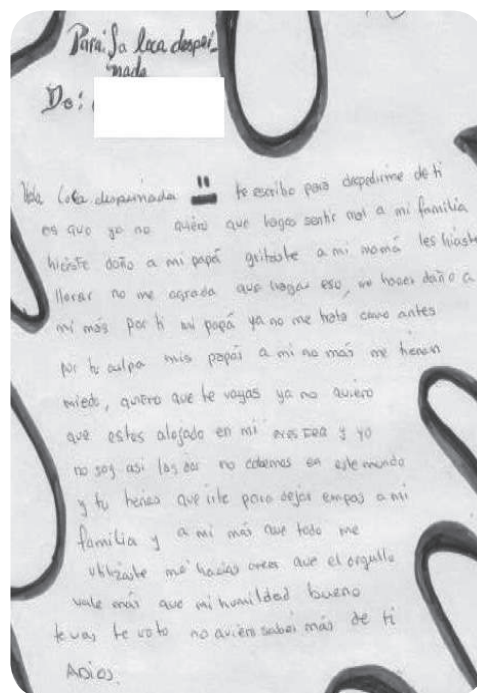 Para: La loca despei-
nada
De:
Hola Loca despeinada te escribo para despedirme de ti
es que ya no quiero que hagas sentir mal a mi familia
hiciste daño a mi papá gritaste a mi mamá les hiciste
llorar no me agrada que hagas eso, me haces daño a
mi más por ti mi papá ya no me trata como antes
por tu culpa mis papás a mi no más me tienen
miedo, quiero que te vayas ya no quiero
que estes alojado en mi eres FEA y yo
no soy asi las dos no cabemos en este mundo
y tu tienes que irte para dejar empas a mi
familia y a mi más que todo me
utilizaste me hacias creer que el orgullo
vale más que mi humildad bueno
te vas te voto no quiero saber más de ti
ADios